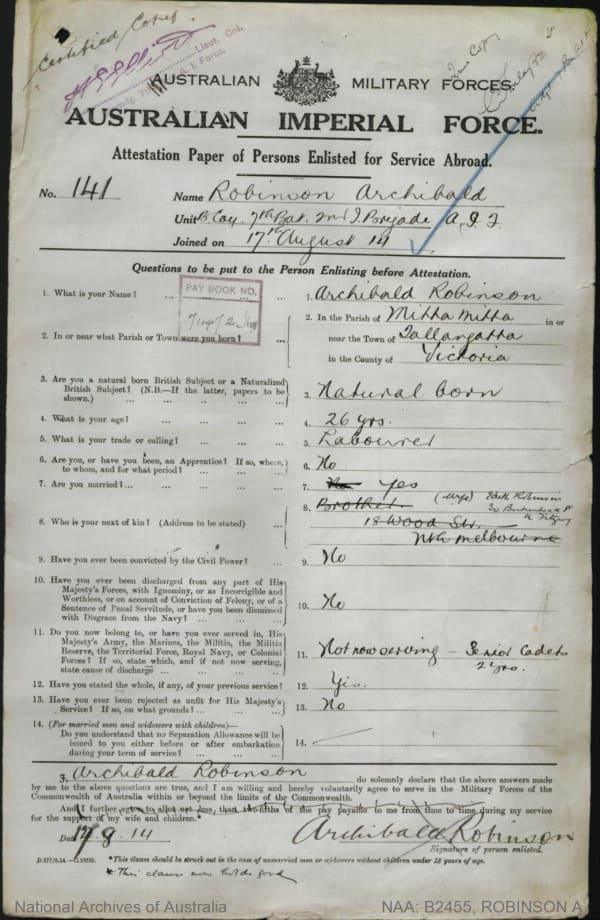 Certified Copy
Lieut. Col.
A. I. Force.
True Copy
AUSTRALIAN MILITARY FORCES.
AUSTRALIAN IMPERIAL FORCE.
Attestation Paper of Persons Enlisted for Service Abroad.
No. 141 Name Robinson Archibald
Unit B Coy. 7th Bat. 2nd I. Brigade A.I.F
Joined on 17th August 14
Questions to be put to the Person Enlisting before Attestation.
PAY BOOK NO.
1. What is your Name? ... 1. Archibald Robinson
2. In or near what Parish or Town were you born? ... 2. In the Parish of Mitta Mitta in or
near the Town of Tallangatta
in the County of Victoria
3. Are you a natural born British Subject or a Naturalized
British Subject? (N.B.—If the latter, papers to be
shown.) ... 3. Natural born
4. What is your age? ... 4. 26 yrs.
5. What is your trade or calling? ... 5. Labourer
6. Are you, or have you been, an Apprentice? If so, where,
to whom, and for what period? ... 6. No
7. Are you married? ... 7. No Yes
8. Who is your next of kin? (Address to be stated) ... 8. Brother. (wife) Edith Robinson
18 Wood Str.
Nth Melbourne
9. Have you ever been convicted by the Civil Power? ... 9. No
10. Have you ever been discharged from any part of His
Majesty's Forces, with Ignominy, or as Incorrigible and
Worthless, or on account of Conviction of Felony, or of a
Sentence of Penal Servitude, or have you been dismissed
with Disgrace from the Navy? ... 10. No
11. Do you now belong to, or have you ever served in, His
Majesty's Army, the Marines, the Militia, the Militia
Reserve, the Territorial Force, Royal Navy, or Colonial
Forces? If so, state which, and if not now serving,
state cause of discharge ... 11. Not now serving — Senior Cadets
2 yrs.
12. Have you stated the whole, if any, of your previous service? 12. Yes.
13. Have you ever been rejected as unfit for His Majesty's
Service? If so, on what grounds? ... 13. No
14. (For married men and widowers with children)—
Do you understand that no Separation Allowance will be
issued to you either before or after embarkation
during your term of service? ... 14.
I, Archibald Robinson do solemnly declare that the above answers made
by me to the above questions are true, and I am willing and hereby voluntarily agree to serve in the Military Forces of the
Commonwealth of Australia within or beyond the limits of the Commonwealth.
And I further agree to allot not less than two-fifths of the pay payable to me from time to time during my service
for the support of my wife and children.*
Date 17.9.14 Archibald Robinson
Signature of person enlisted.
*This clause should be struck out in the case of unmarried men or widowers without children under 18 years of age.
* This clause now holds good
National Archives of Australia NAA: B2455, ROBINSON A